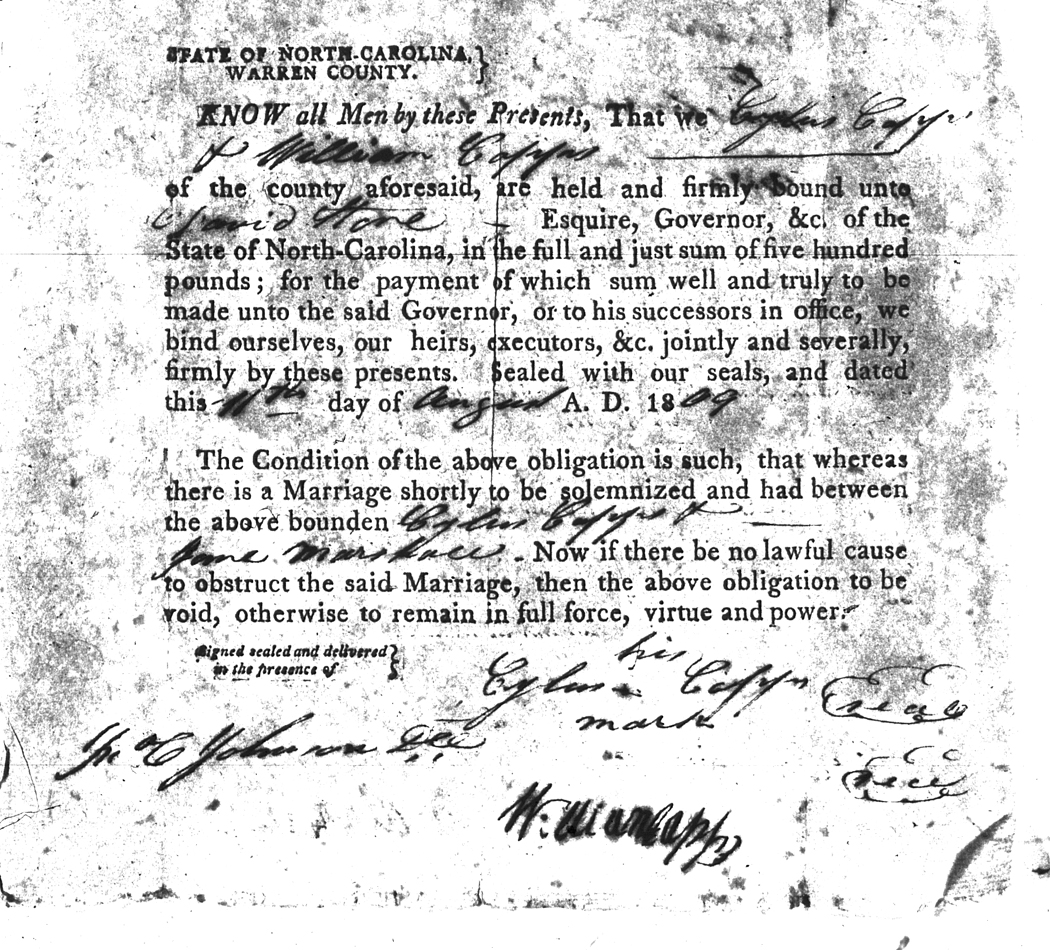 STATE OF NORTH-CAROLINA,
WARREN COUNTY.
KNOW all Men by these Presents, That we Cylus Capps
& William Capps
of the county aforesaid, are held and firmly bound unto
David Stone Esquire, Governor, &c. of the
State of North-Carolina, in the full and just sum of five hundred
pounds; for the payment of which sum well and truly to be
made unto the said Governor, or to his successors in office, we
bind ourselves, our heirs, executors, &c. jointly and severally,
firmly by these presents. Sealed with our seals, and dated
this 11th day of August A. D. 1809
The Condition of the above obligation is such, that whereas
there is a Marriage shortly to be solemnized and had between
the above bounden Cylus Capps &
Jane Marshall. Now if there be no lawful cause
to obstruct the said Marriage, then the above obligation to be
void, otherwise to remain in full force, virtue and power.
Signed sealed and delivered
in the presence of
his
Cylus Capps seal
mark
Johnson
seal
William Capps